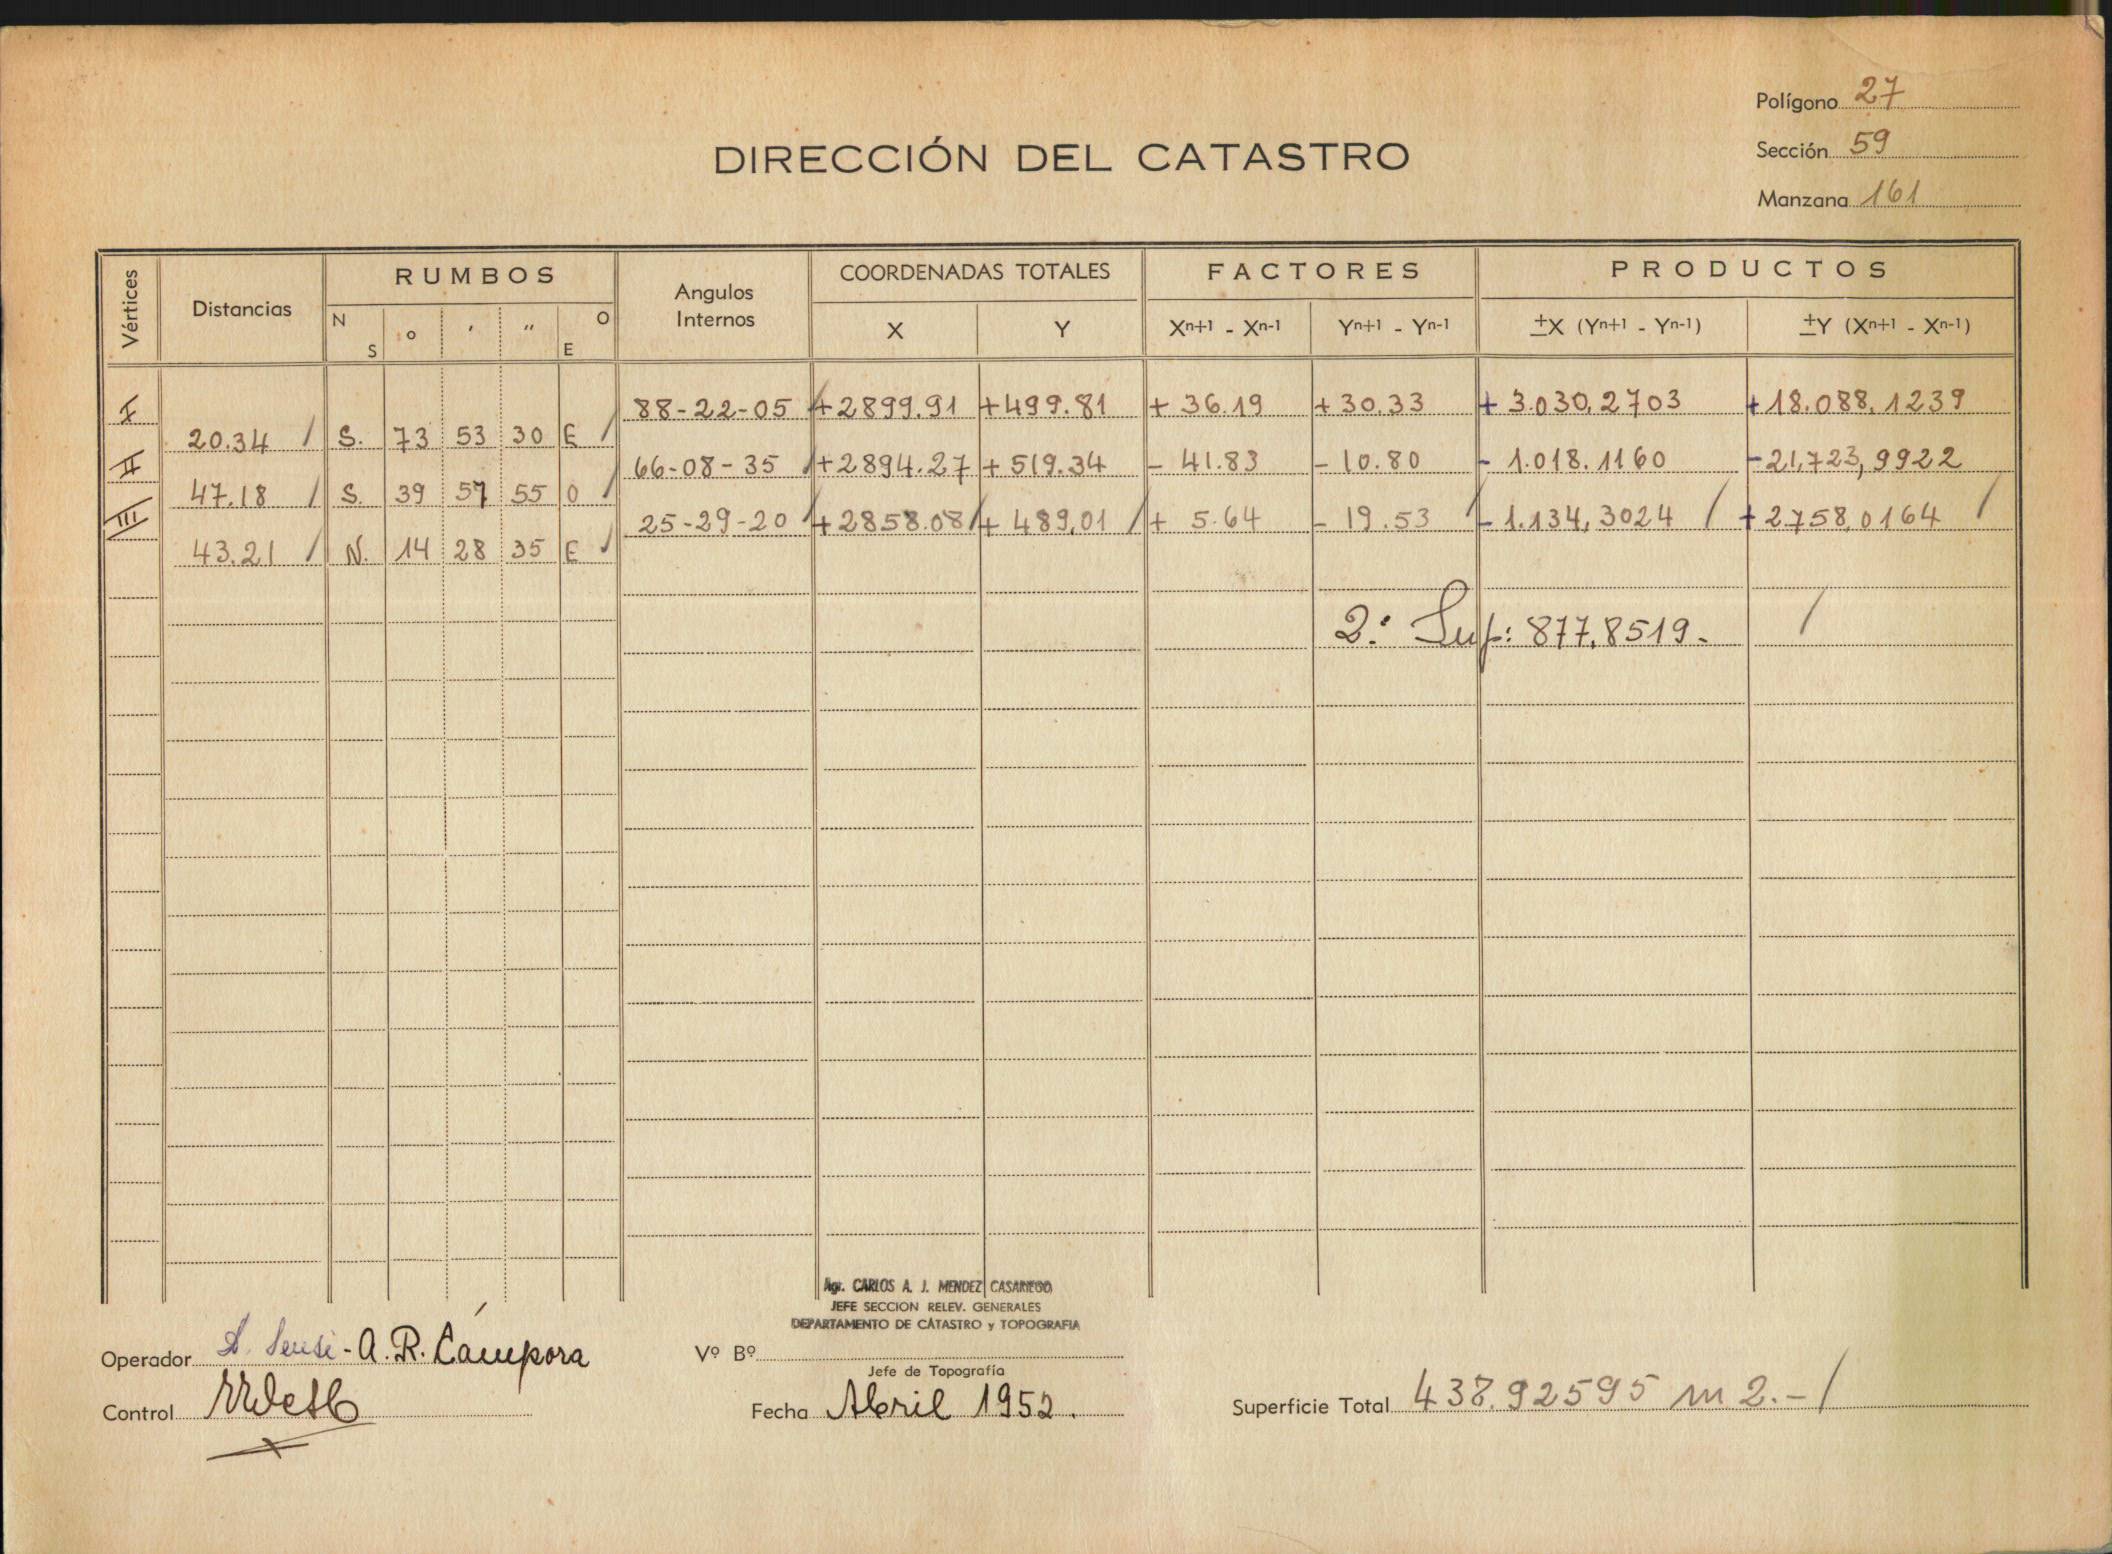 Polígono 27
DIRECCIÓN DEL CATASTRO
Sección 59
Manzana 161
Vértices Distancias RUMBOS Angulos Internos COORDENADAS TOTALES FACTORES PRODUCTOS
N S o ' " O E X Y Xn+1 - Xn-1 Yn+1 - Yn-1 ±X (Yn+1 - Yn-1) ±Y (Xn+1 - Xn-1)
I 88-22-05 +2899.91 +499.81 + 36.19 +30.33 + 3.030,2703 +18.088,1239
20.34 S. 73 53 30 E
II 66-08-35 +2894.27 + 519.34 - 41.83 - 10.80 - 1.018.1160 -21,723,9922
47.18 S. 39 57 55 O
III 25-29-20 +2858.08 + 489,01 + 5.64 - 19.53 - 1.134,3024 +2758,0164
43.21 N. 14 28 35 E
2: Sup: 877,8519.
Agr. CARLOS A. J. MENDEZ CASARIEGO
JEFE SECCION RELEV. GENERALES
DEPARTAMENTO DE CATASTRO y TOPOGRAFIA
Operador - A. R. Cámpora
Vº Bº
Jefe de Topografía
Control
Fecha Abril 1952.
Superficie Total 438.92595 m2.-